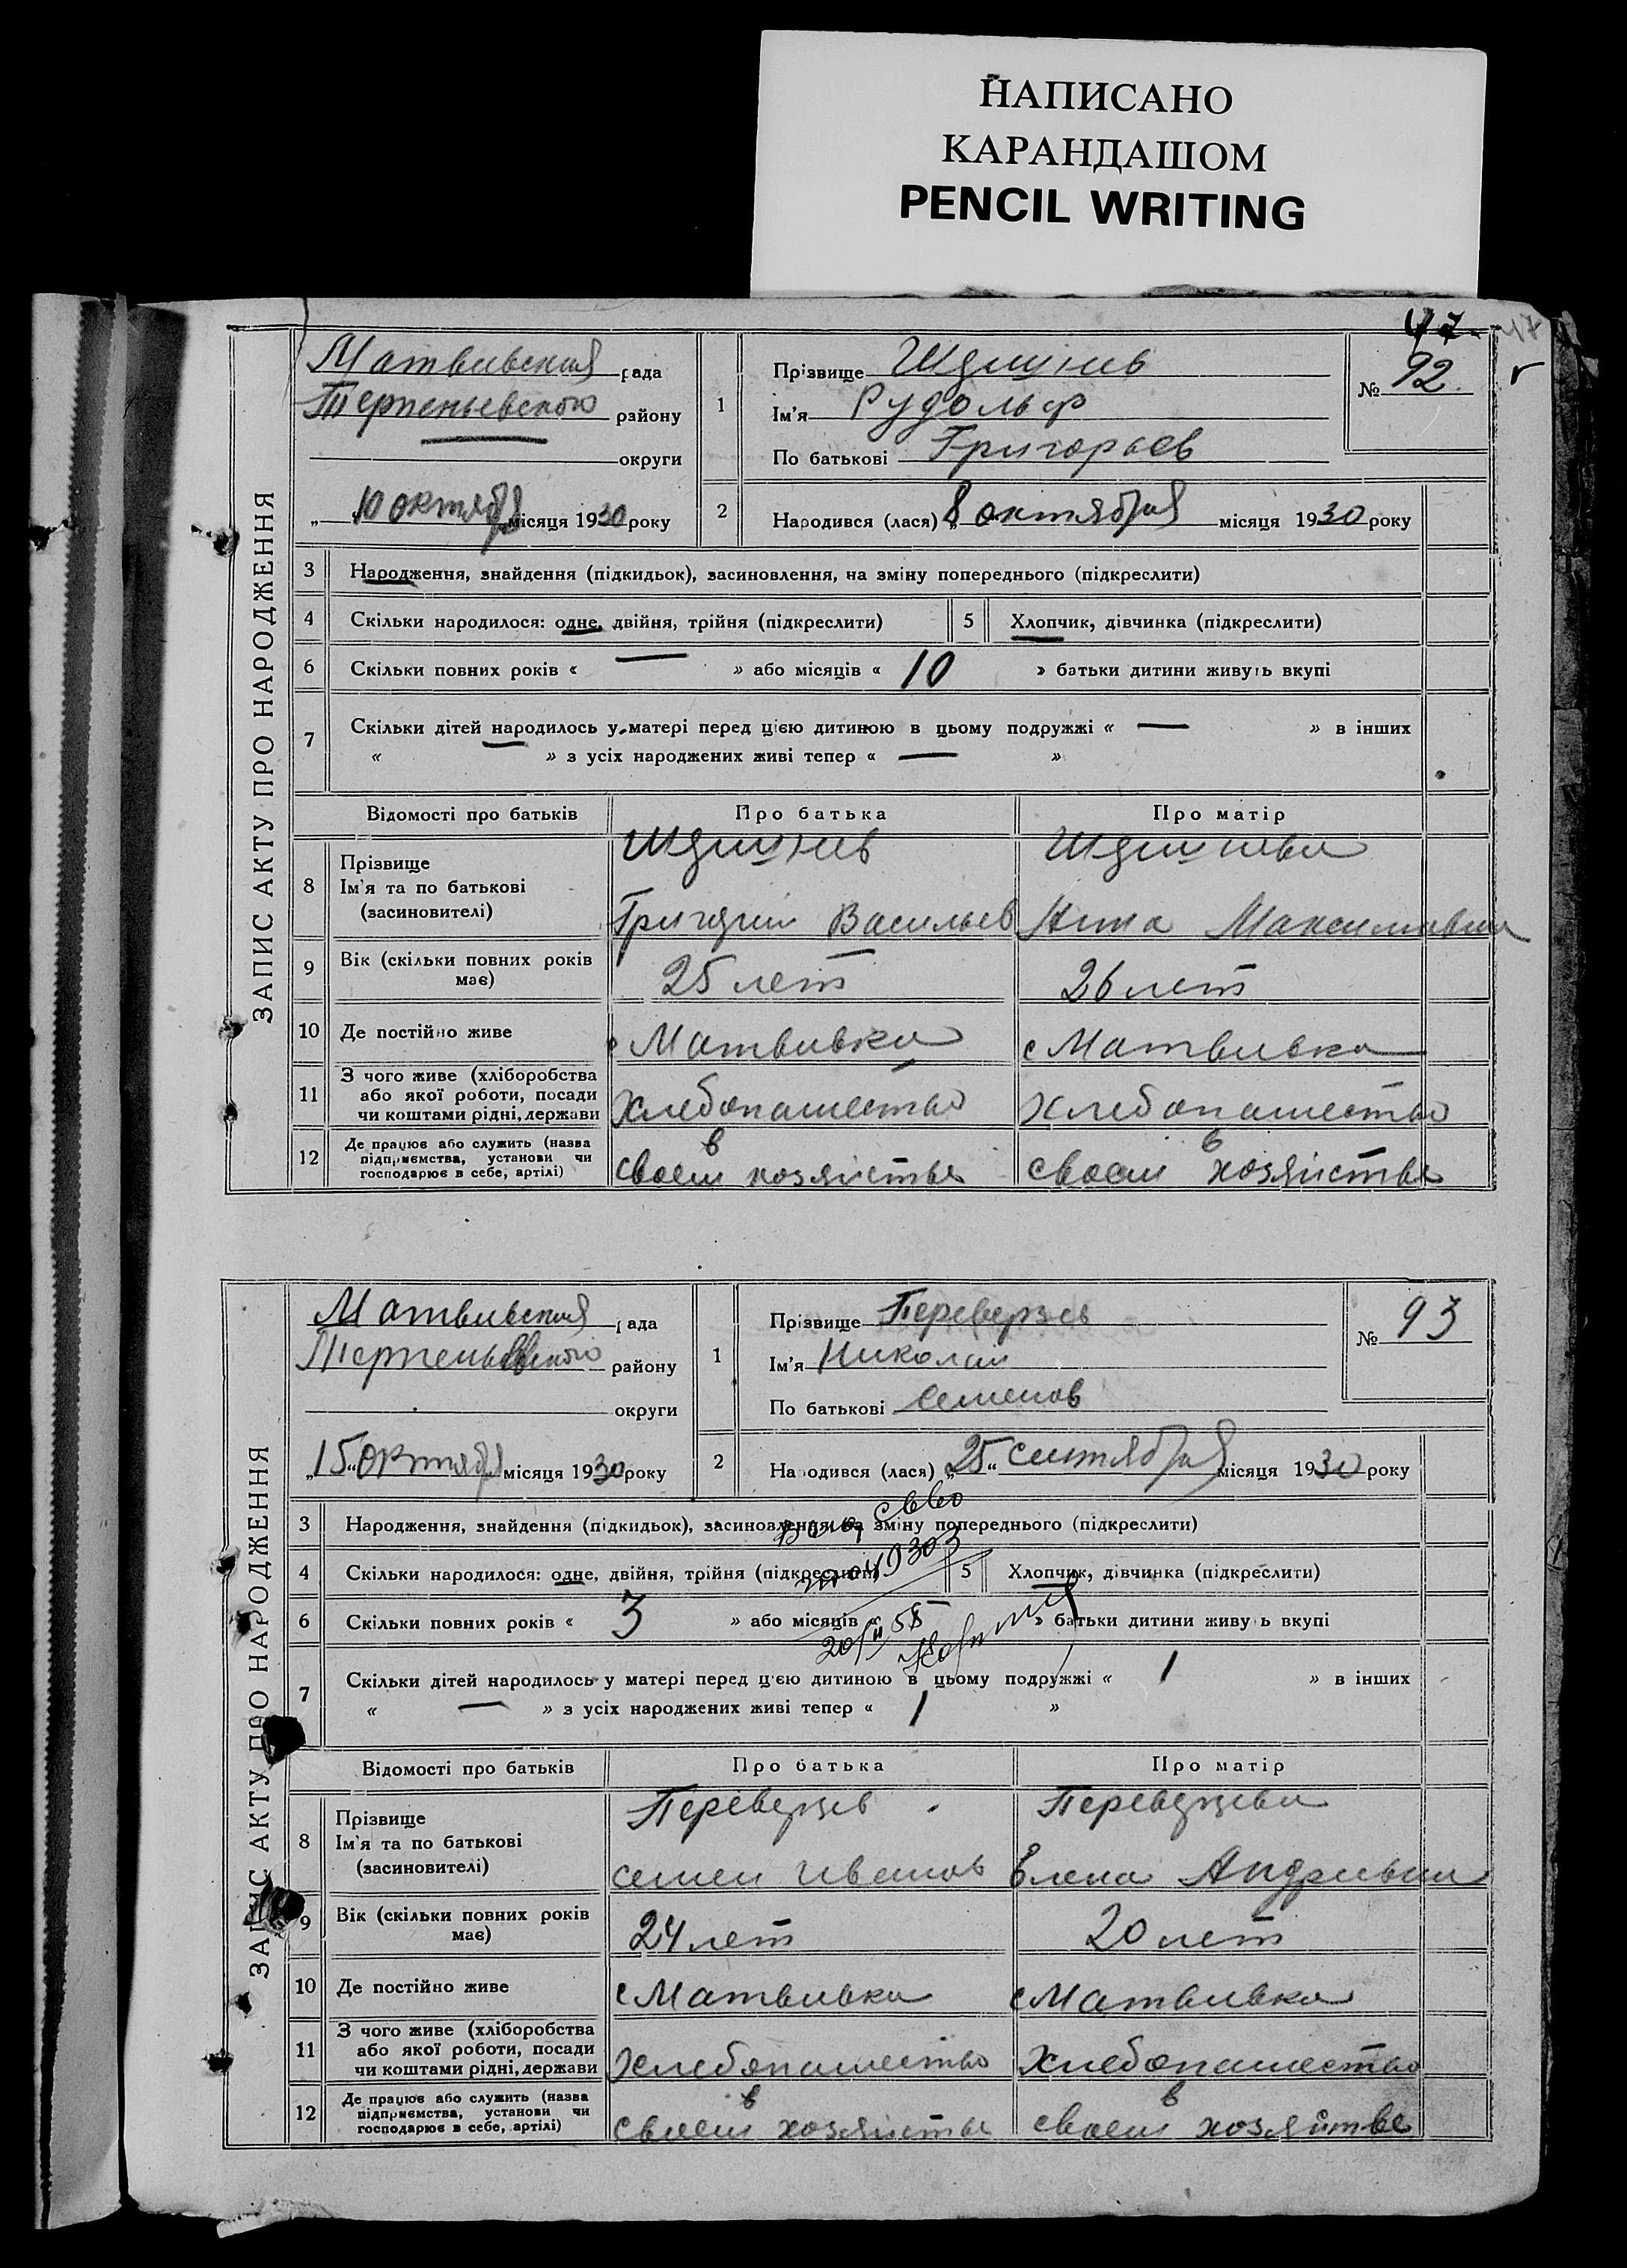 НАПИСАНО
КАРАНДАШОМ
PENCIL WRITING
47
ЗАПИС АКТУ ПРО НАРОДЖЕННЯ
Матвивская рада
Терпеньевского району
округи
„10 октября місяця 1930 року
1
Прізвище
Ім'я Рудольф
По батькові Григорьев
№ 92
2
Народився (лася) „8 октября місяця 1930 року
3 Народження, знайдення (підкидьок), засиновлення, на зміну попереднього (підкреслити)
4 Скільки народилося: одне, двійня, трійня (підкреслити) 5 Хлопчик, дівчинка (підкреслити)
6 Скільки повних років « — » або місяців « 10 » батьки дитини живуть вкупі
7 Скільки дітей народилось у матері перед цією дитиною в цьому подружжі « — » в інших
« — » з усіх народжених живі тепер « — »
Відомості про батьків Про батька Про матір
8 Прізвище
Ім'я та по батькові
(засиновителі)
Григорий Васильев Максимовна
9 Вік (скільки повних років має) 25 лет 26 лет
10 Де постійно живе с Матвивка с Матвивка
11 З чого живе (хліборобства або якої роботи, посади чи коштами рідні, держави Хлебопашество Хлебопашество
12 Де працює або служить (назва підприємства, установи чи господарює в себе, артілі) в своем хозяйстве в своем хозяйстве
ЗАПИС АКТУ ПРО НАРОДЖЕННЯ
Матвивская рада
Терпеньевского району
округи
„15“ октября місяця 1930 року
1
Прізвище Переверзев
Ім'я Николай
По батькові Семенов
№ 93
2
Народився (лася) „25“ сентября місяця 1930 року
3 Народження, знайдення (підкидьок), засиновлення, на зміну попереднього (підкреслити)
4 Скільки народилося: одне, двійня, трійня (підкреслити) 5 Хлопчик, дівчинка (підкреслити)
6 Скільки повних років « 3 » або місяців « — » батьки дитини живуть вкупі
7 Скільки дітей народилось у матері перед цією дитиною в цьому подружжі « 1 » в інших
« — » з усіх народжених живі тепер « 1 »
Відомості про батьків Про батька Про матір
8 Прізвище
Ім'я та по батькові
(засиновителі)
Переверзев Переверзева
Семен Иванов Елена Андривна
9 Вік (скільки повних років має) 24 лет 20 лет
10 Де постійно живе с Матвивка с Матвивка
11 З чого живе (хліборобства або якої роботи, посади чи коштами рідні, держави Хлебопашество Хлебопашество
12 Де працює або служить (назва підприємства, установи чи господарює в себе, артілі) в своем хозяйстве в своем хозяйстве